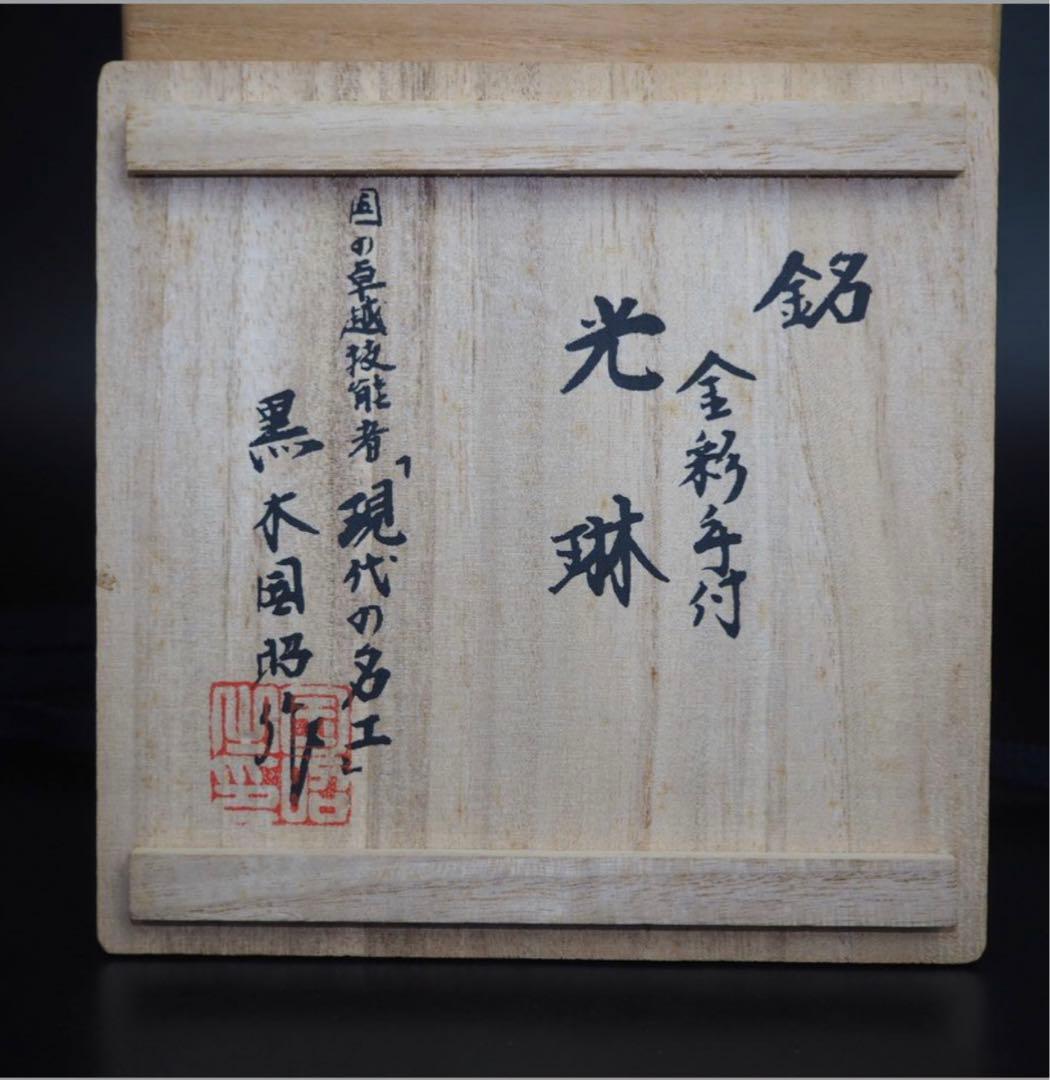 銘
金彩手付
光琳
国の卓越技能者「現代の名工」
黒木国昭作
国昭之印